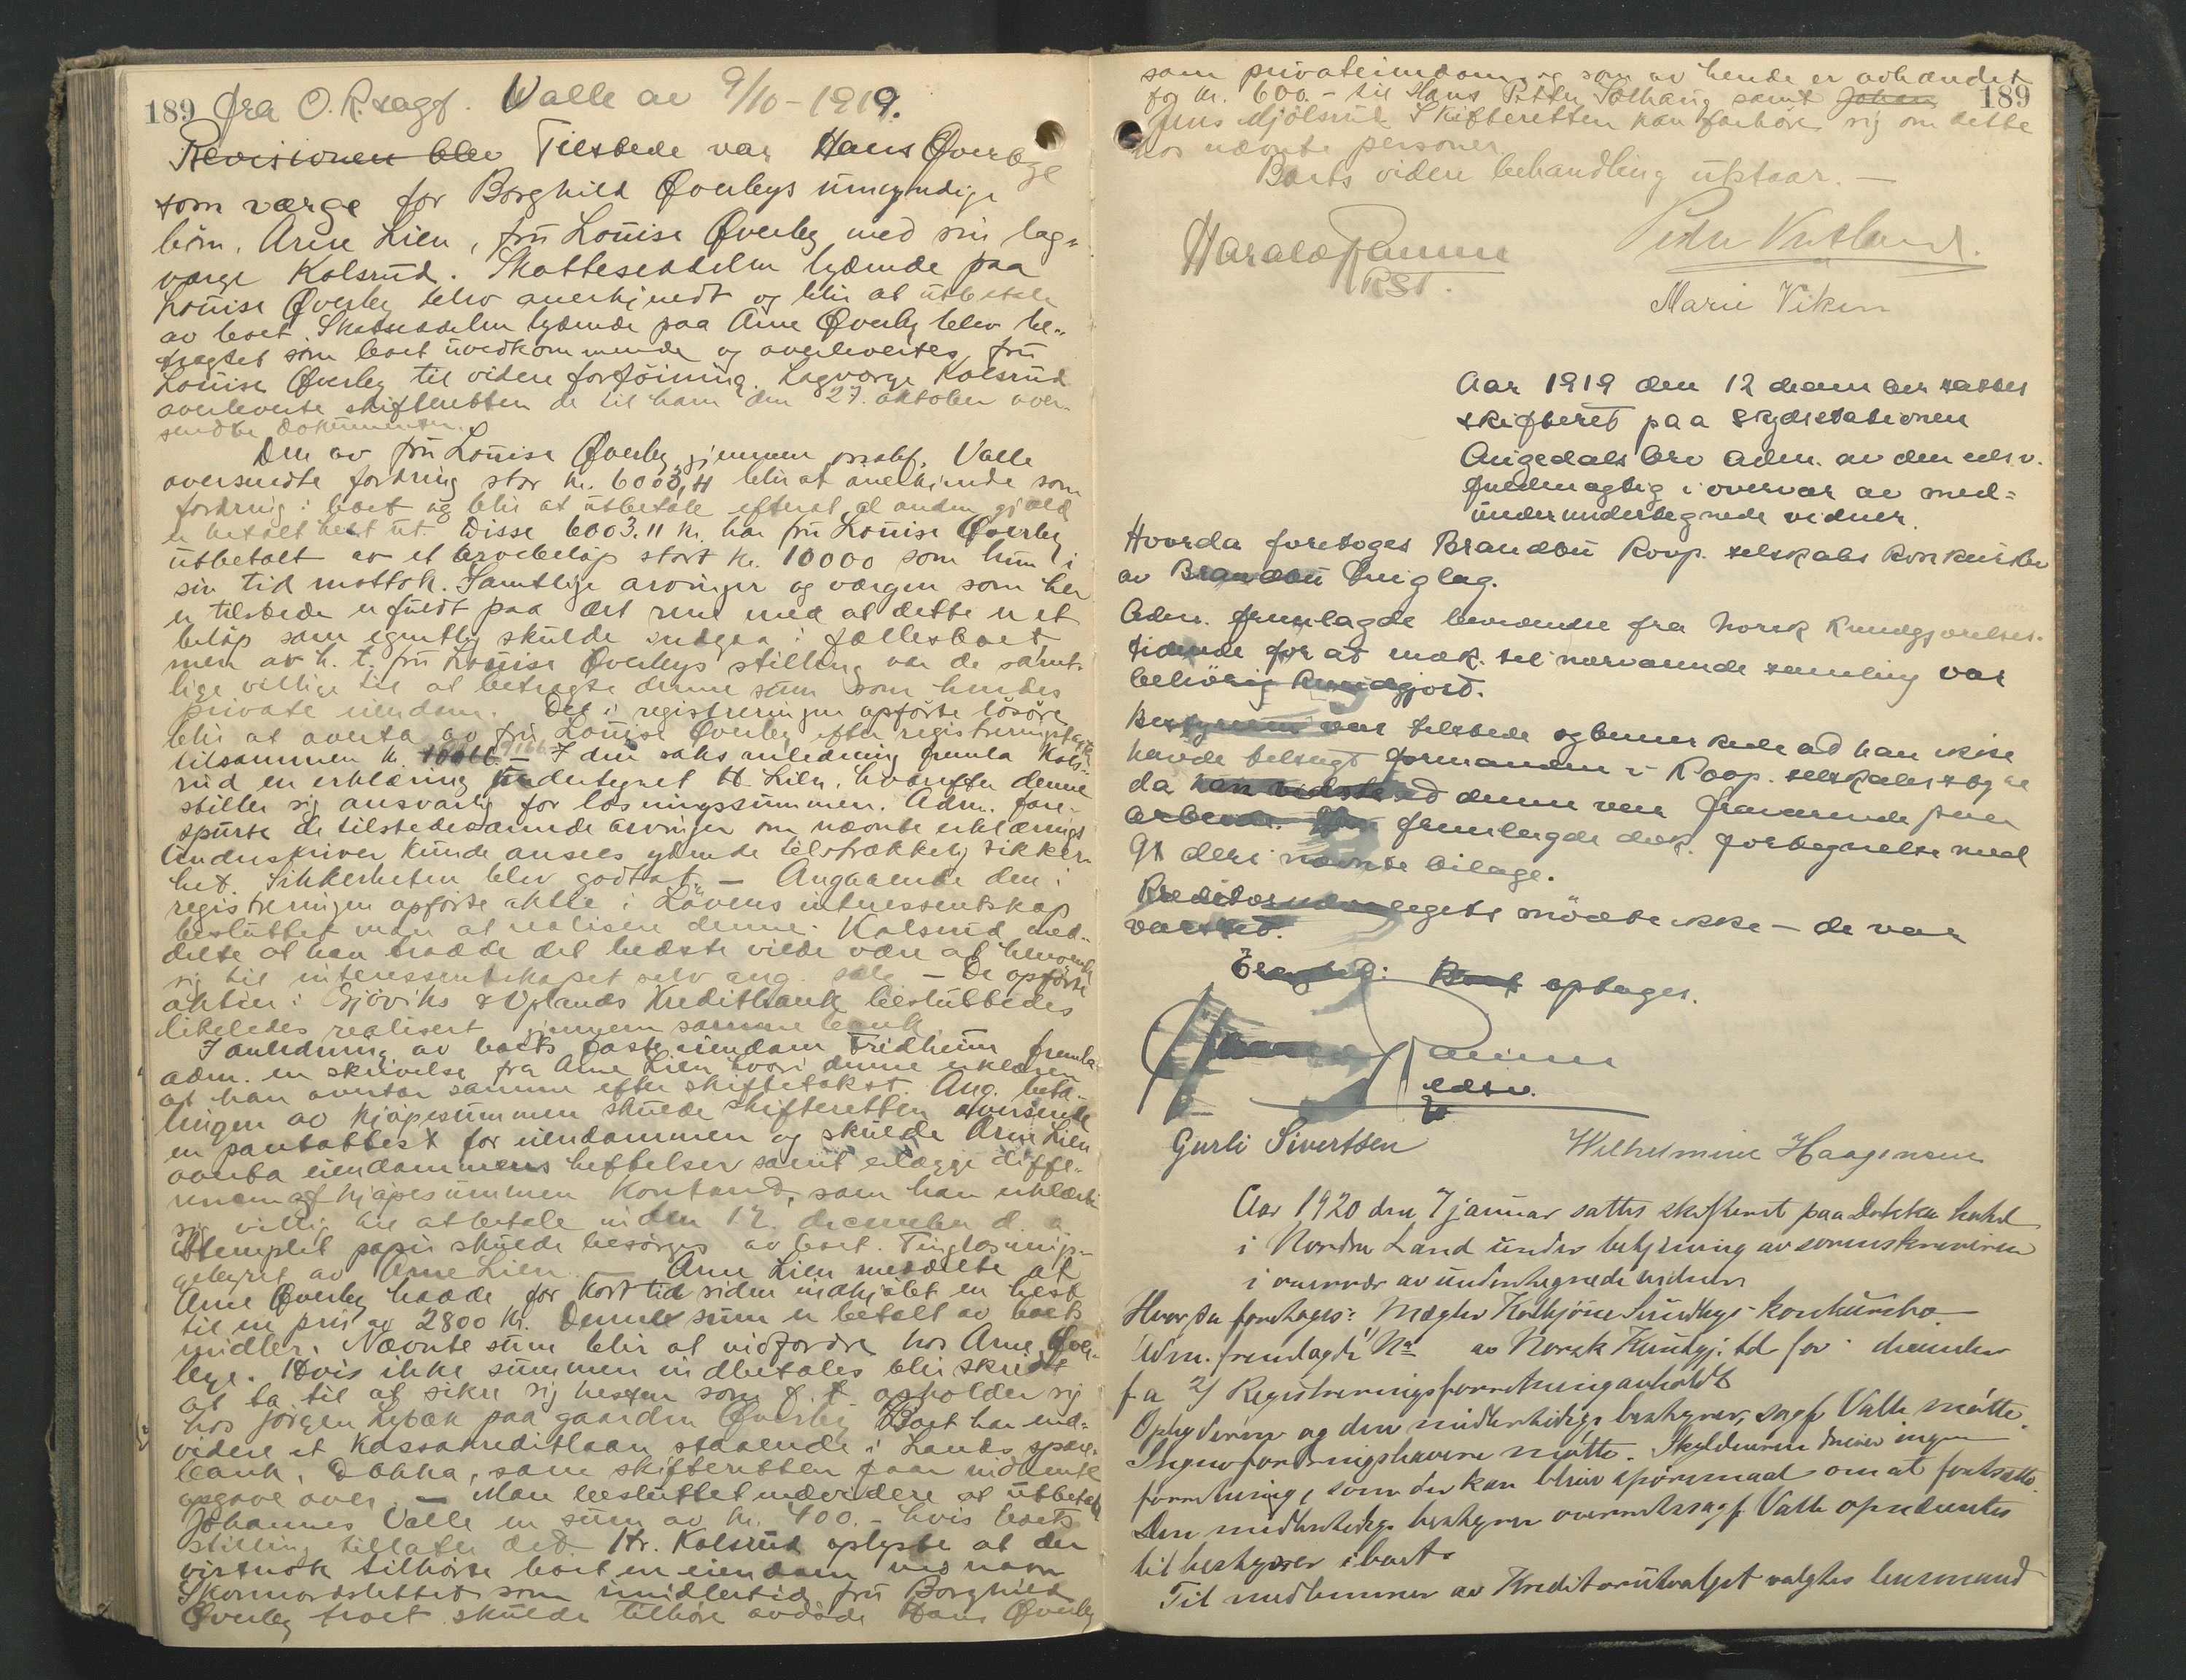 189 fra O.R.sagf. Valle av 9/10-1919.
Revisionen blev Tilstede var Hans Øverbye
som værge for Borghild Øverbys umyndige
börn. Arne Lien, fru Louise Øverby med sin lag=
værge Kolsrud. Skatteseddelen lydende paa
Louise Øverby blev anerkjendt og blir at utbetale
av boet. Skatseddelen lydende paa Arne Øverby blev be-
tragtet som boet uvedkommende og overlevertes fru
Louise Øverby til videre forföining. Lagværge Kolsrud
overleverte skifteretten de til ham den 27. oktober over-
sendte dokumenter.
Den av fru Louise Øverby gjennem Valle
oversendte fordring stor kr. 6003,11 blir at anerkjende som
fordring i boet og blir at utbetale efterat al anden gjæld
er betalt helt ut. Disse 6003.11 kr. har fru Louise Øverby
utbetalt av et arvebelöp stort kr. 10000 som hun i
sin tid mottok. Samtlige arvinger og værgen som her
er tilstede er fuldt paa det rene med at dette er et
belöp som egentlig skulde indgaa i fællesboet,
men av h. t. fru Louise Øverbys stilling var de samt-
lige villige til at betragte denne sum som hendes
private eiendom. Det i registreringen opförte lösöre
blir at overta av fru Louise Øverby efter registreringstakst
tilsammen kr. – I den saks anledning fremla Kols-
rud en erklæring undertegnet H. Lien, hvorefter denne
stiller sig ansvarlig for løsningssummen. Adm. fore-
spurte de tilstedeværende arvinger om nævnte erklærings
underskriver kunde ansees ydende tilstrækkelig sikker-
het. Sikkerheten blev godtat. – Angaaende den i
registreringen opförte aktie i Lövens interessentskap
besluttet man at realisere denne. Kolsrud med-
delte at han trodde det bedste vilde være at henvende
sig til interessentskapet selv ang. salg – De opførte
aktier i Gjöviks & Oplands Kreditbank besluttedes
likeledes realisert gjennem samme bank.
I anledning av boets faste eiendom Fredheim fremla
adm. en skrivelse fra Arne Lien hvori denne erklærer
at han overtar samme efter skiftetakst. Ang. beta-
lingen av kjöpesummen skulde skifteretten oversende
en pantattest for eiendommen og skulde Arne Lien
overta eiendommens heftelser samt erlægge diffe-
rencen af kjöpesummen kontant, som han erklærte
sig villig til at betale inden 12. december d. a.
Stemplet papir skulde besørges av boet. Tinglæsnings-
gebyret av Arne Lien. – Arne Lien meddelte at
Arne Øverby hadde for kort tid siden indkjöbt en hest
til en pris av 2800 kr. Denne sum er betalt av boets
midler. Nævnte sum blir at indfordre hos Arne Øver-
bye. Hvis ikke summen indbetales blir skridt
at ta til at sikre sig hesten som f. t. opholder sig
hos Jörgen Lybæk paa gaarden Øverby. Boet har end-
videre et kassakreditlaan staaende i Lands spare-
bank, Dokka, som skifteretten faar indhente
opgave over. – Man besluttet endvidere at utbetale
Johannes Valle en sum av kr. 400.- hvis boets
stilling tillater det. Hr. Kolsrud oplyste at der
vistnok tilhörte boet en eiendom ved navn
som imidlertid fru Borghild
Øverby troet skulde tilhöre avdöde Hans Øverby
189
som privateiendom, og som av hende er avhændet
for kr. 600.- til Hans Petter Solhaug samt Johan
Jens Mjölsrud Skifteretten kan forhöre sig om dette
hos nævnte personer.
Boets videre behandling utstaar. –
Harald Ramm
Peder
Marie Viken
Aar 1919 den 12 december sattes
skifteret paa Skydsstationen
Augedals bro adm. av den eds.v.
fuldmægtig i overvær av med=
underundertegnede vidner.
Hvorda foretoges Brandbu Koop. selskabs konkursbo
av Brandbu tinglag.
Adm. fremlagde beviset fra Norsk Kundgjörelses-
tidende for at indk. til nærværende samling var
behörig kundgjort.
Bestyreren var tilstede og bemerkede at han ikke
havde tilsagt formanden i Koop. selskabets styre
da han vidste at denne var fraværende paa
arbeide. Han fremlagde dok. fortegnelse med
91 deri nævnte bilage.
Kreditorudvalgets mödte ikke – de var
varslet.
Eragtet: Boet optages.
Harald Ramm
edsv.
Gurli Sivertsen
Wilhelmine Haagensen
Aar 1920 den 7 januar sattes skifteret paa Dokka hotel
i Nordre Land under betjening av sorenskriveren
i overvær av undertegnede vidner
Hvorda foretoges: Mægler Sundbys konkursbo.
Adm. fremlagde No av Norsk Kundgj. tid for december
f a 2) Registreringsforretning avholdt
Opbyderen og den midlertidige bestyrer, sagf. Valle mötte.
Ingen fordringshavere mötte. Skyldneren driver ingen
forretning, som der kan blive spörsmaal om at fortsætte.
Den midlertidige bestyrer overretssagf. Valle opnævntes
til bestyrer i boet.
Til medlemmer av Kreditorutvalget valgtes lensmand